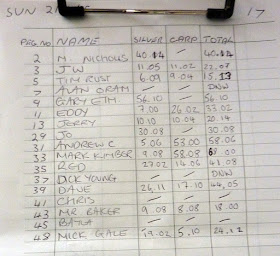 SUN 2 17
PEG NO NAME SILVER CARP TOTAL
2 M. NICHOLS 40.14 — 40.14
3 J W 11.05 11.02 22.07
5 TIM RUST 6.09 9.04 15.13
7 ALAN ORAM — — DNW
9 GARY ETH 56.10 — 56.10
11 EDDY 7.00 26.02 33.02
13 JERRY 10.10 10.04 20.14
29 JO 30.08 — 30.08
31 ANDREW C 5.06 53.00 58.06
33 MARK KIMBER 9.08 58.08 68.00
35 REG 27.02 14.06 41.08
37 DICK YOUNG — — DNW
39 DAVE 26.11 17.10 44.05
41 CHRIS — — —
43 MR BAKER 9.08 8.08 18.00
45 — — —
48 MICK GALE 19.02 5.10 24.12